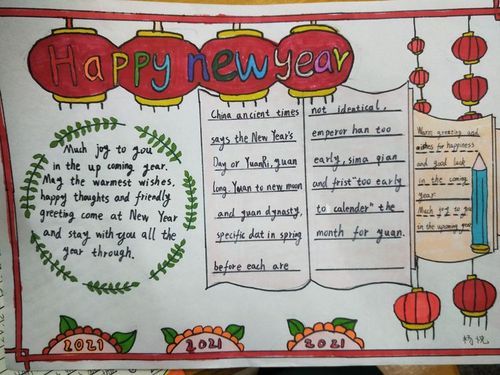 Happy new year
Much joy to you
in the up coming year.
May the warmest wishes,
happy thoughts and friendly
greeting come at New Year
and stay with you all the
year through.
China ancient times
says the New Year's
Day or YuanRi, yuan
long. Yuan to new moon
and yuan dynasty,
specific dat in spring
before each are
not identical,
emperor han too
early, sima qian
and frist "too early
to calender" the
month for yuan.
Warm greezing and
wishes for happiness
and good luck
in the coming
year.
Much joy to you
in the waming year
2021
2021
2021